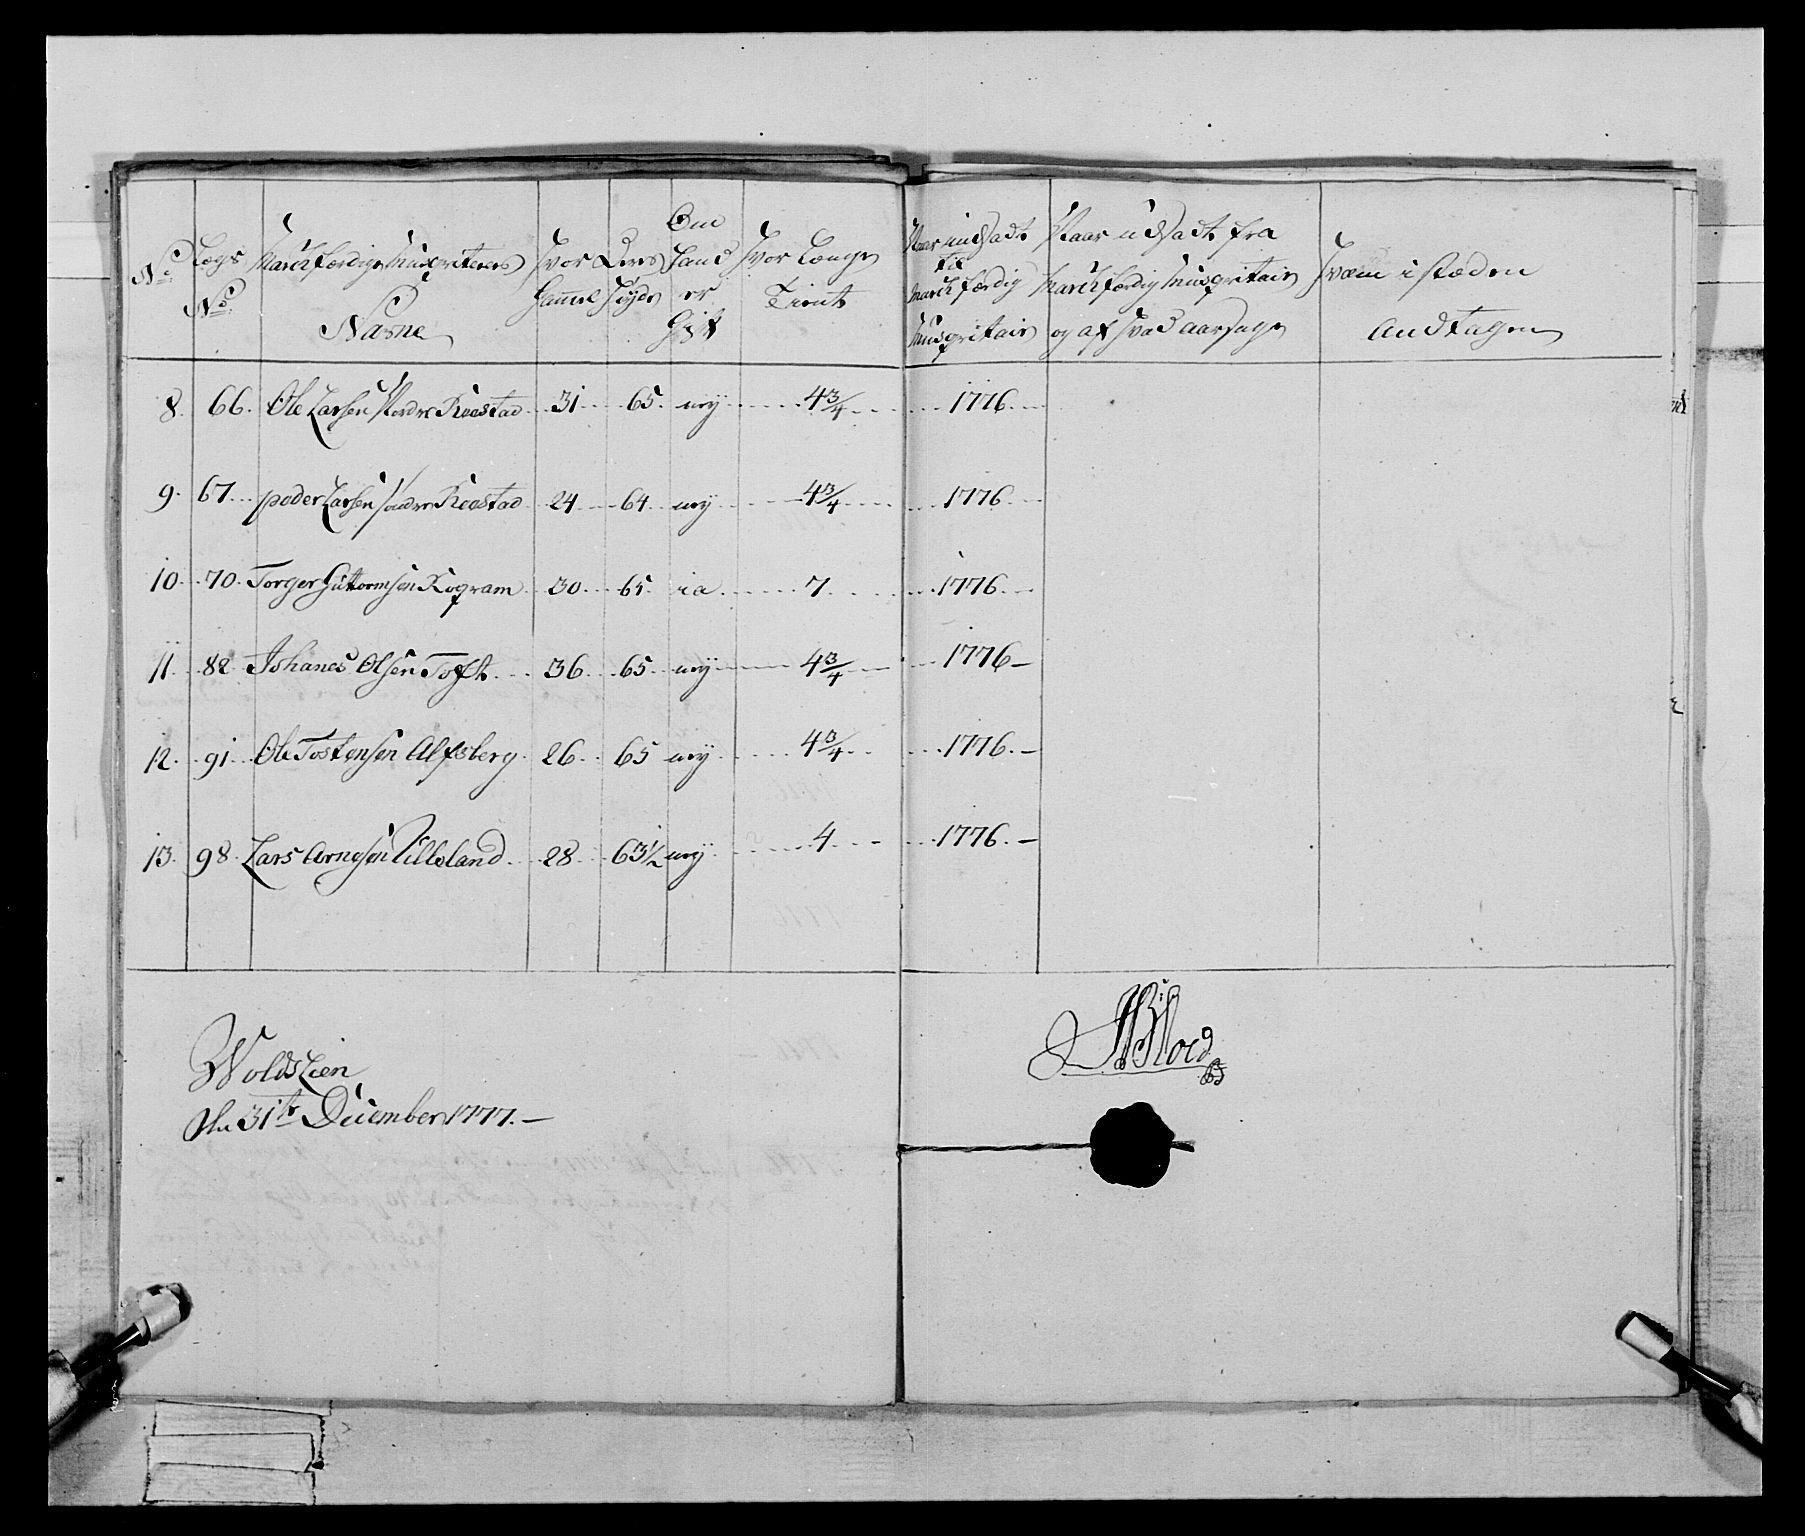 No Lægs No Marchfærdige Musqriterers Nafne Hvor Gammel Deres Høyde Om Hand er Gift Hvor Længe Tient Naar indsadt til March færdig Musqritair Naar udsadt fra Marchfærdig Musqritair og af hvad aarsage Hvem i stæden Andtagen
8. 66. Ole Larsen Nordre Reestad 31 65. neÿ 4 3/4 1776.
9. 67. peder Larsen Søndre Reestad 24 64 neÿ 4 3/4 1776.
10. 70. Torger Guttormsen Rogram 30 65. ia 7 1776.
11. 82 Johanes Olsen Toft 36 65 neÿ 4 3/4 1776
12. 91 Ole Tostensen Alfsberg 26 65 neÿ 4 3/4 1776.
13. 98. Lars Arnesen Lilleland 28 63 1/2 neÿ 4 1776.
Woldslien
den 31te December 1777.